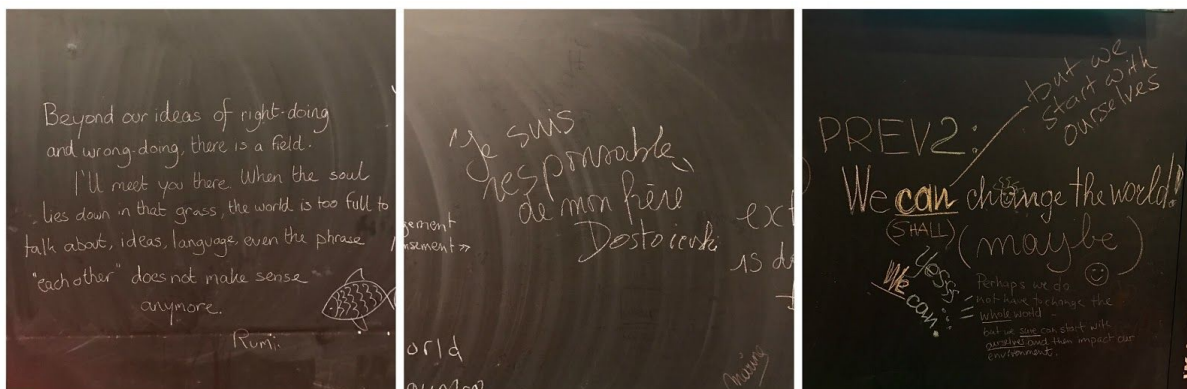 Beyond our ideas of right-doing
and wrong-doing, there is a field.
I'll meet you there. When the soul
lies down in that grass, the world is too full to
talk about, ideas, language, even the phrase
"each other" does not make sense
anymore.
Rumi.
Je suis
responsable
de mon frère
Dostoievski
gement
nsement »
ext
is d
orld
but we
start with
ourselves
PREV2:
We can change the world!
(SHALL)
(maybe)
Yesss
We can.
Perhaps we do
not have to change the
whole world
but we sure can start with
ourselves and then impact our
environment.